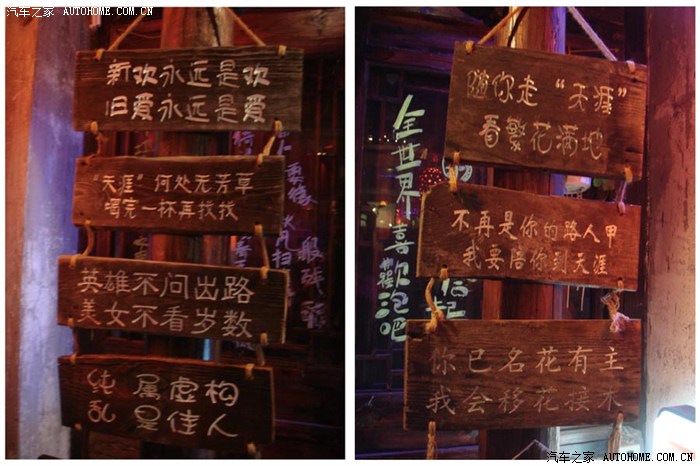 汽车之家 AUTOHOME.COM.CN
新欢永远是欢
旧爱永远是爱
"天涯"何处无芳草
喝完一杯再找找
英雄不问出路
美女不看岁数
纯属虚构
乱是佳人
汽车之家 AUTOHOME.COM.CN
随你走"天涯"
看繁花满地
不再是你的路人甲
我要陪你到天涯
你已名花有主
我会移花接木
全世界
喜欢泡吧
汽车之家 AUTOHOME.COM.CN